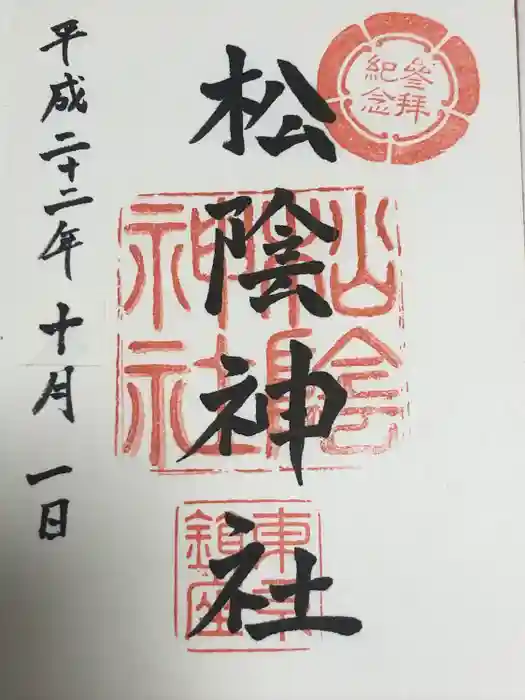 參拜
紀念
松陰神社
神社
東京
鎮座
平成二十二年十月一日